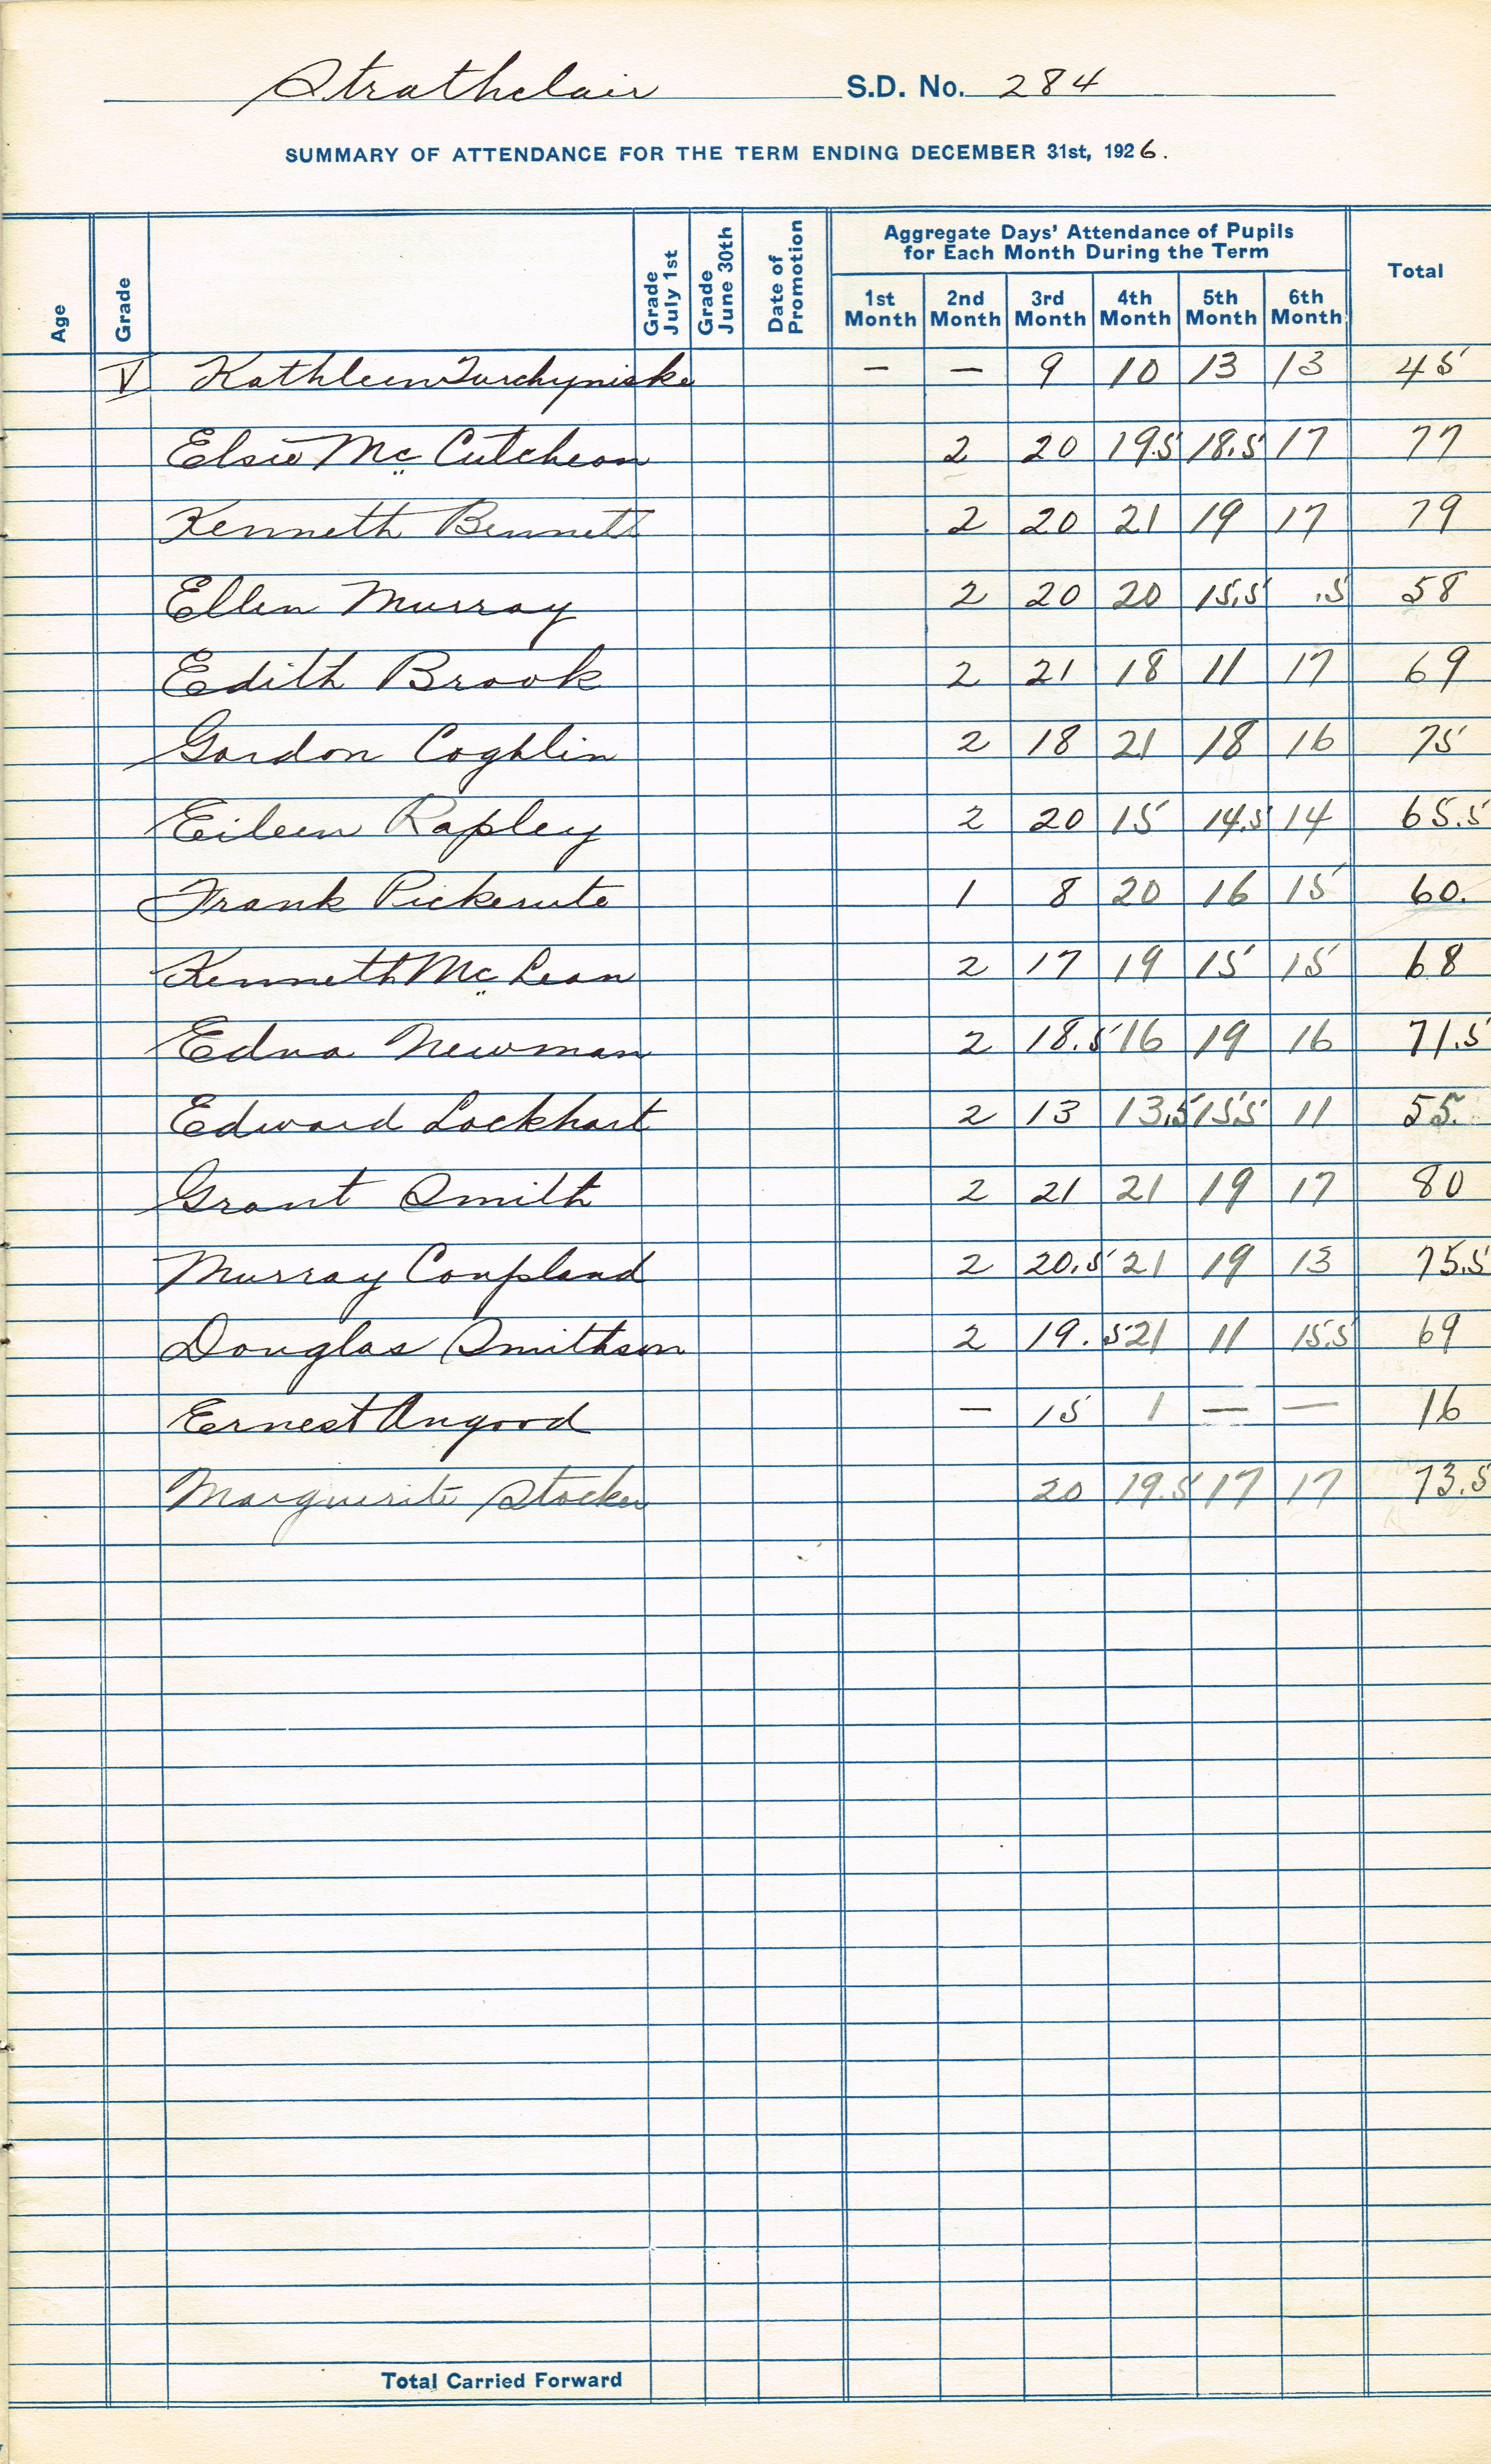 Strathclair S.D. No. 284
SUMMARY OF ATTENDANCE FOR THE TERM ENDING DECEMBER 31st, 1926.
Age Grade Grade July 1st Grade June 30th Date of Promotion Aggregate Days' Attendance of Pupils for Each Month During the Term Total
1st Month 2nd Month 3rd Month 4th Month 5th Month 6th Month
V Kathleen Turchyniske – – 9 10 13 13 45
Elsie Mc Cutcheon 2 20 19.5 18.5 17 77
Kenneth Bennett 2 20 21 19 17 79
Ellen Murray 2 20 20 15.5 .5 58
Edith Brook 2 21 18 11 17 69
Gordon Coghlin 2 18 21 18 16 75
Eileen Rapley 2 20 15 14.5 14 65.5
Frank 1 8 20 16 15 60.
Kenneth Mc Lean 2 17 19 15 15 68
Edna Newman 2 18.5 16 19 16 71.5
Edward Lockhart 2 13 13.5 15.5 11 55.
Grant Smith 2 21 21 19 17 80
Murray Coupland 2 20.5 21 19 13 75.5
Douglas Smithson 2 19.5 21 11 15.5 69
Ernest Angood – 15 1 – – 16
Marguerite Stocker 20 19.5 17 17 73.5
Total Carried Forward